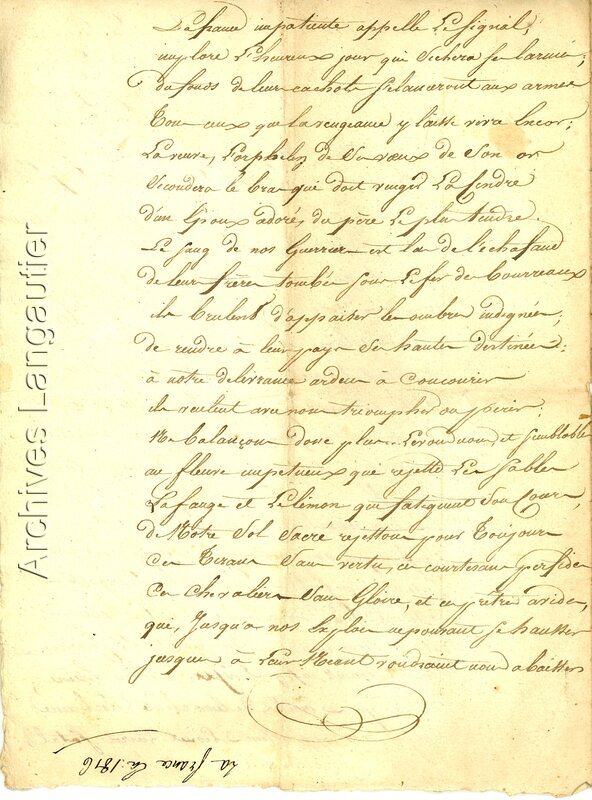 La france impatiente appelle Le signal,
implore L'heureux jour qui Sechera Ses larmes;
du fonds de leurs cachots S'elanceront aux armes
Tous ceux que la vengeance y laisse vivre Encor;
La veuve, L'orphelin, de Ses vœux de Son or
Secondera le bras qui doit vanger La Cendre
d'un Epoux adoré, du père Le plus tendre.
Le sang de nos Guerriers est las de l'échafaud
de leurs frères tombés sous Le fer des bourreaux
ils brulent d'appaiser les ombres indignées;
de rendre à leur pays Ses hautes destinées;
à notre délivrance ardens à Concourir
ils veulent avec nous triompher ou périr.
Ne balançons donc plus. Levons nous, et semblables
au fleuve impetueux qui rejette Les Sables
La fange et Le limon qui fatiguent Son Cours,
de Notre Sol Sacré rejettons pour Toujours
Ces Tirans Sans vertus, ces courtisans perfides
Ces Chevaliers Sans Gloire, et ces prêtres avides,
qui, Jusqu'a nos Exploits ne pouvant se hausser
jusques à Leur Néant voudraient nous abaisser
La france en 1816
Archives Langautier